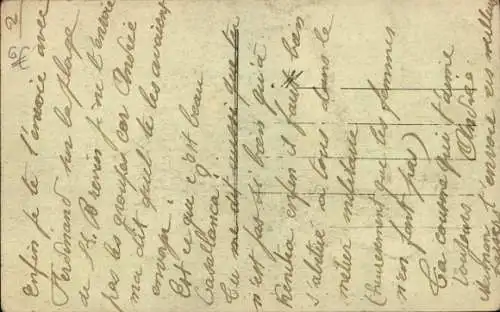 2
Enfin je te l'envoie avec
Ferdinand sur la plage
de St Brevin je ne t'envoie
pas les groupes car Andrée
m'a dit qu'elle te les avaient
envoyé.
Est ce que c'est beau
Casablanca?
Tu me dis aussi que tu
n'est pas si bien qu'à
Kenitra enfin il faux bien
s'abitué a tous dans le
métier militaire
(heureusement que les femmes
n'en font pas)
Ta cousine qui t'aime
toujours Andrée
Mignon t'envoie ses meilleurs